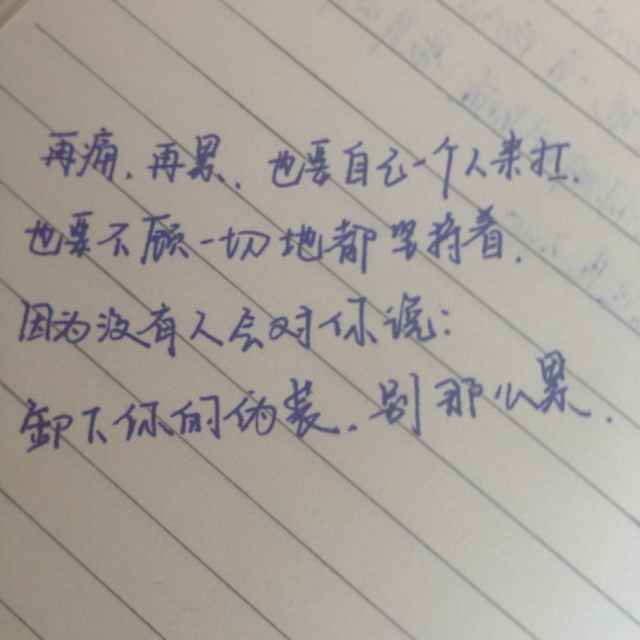 再痛.再累.也要自己一个人来扛.
也要不顾一切地都坚持着.
因为没有人会对你说:
卸下你的伪装.别那么累.